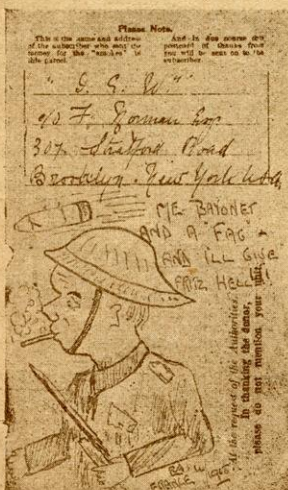 Please Note.
This is the name and address
of the subscriber who sent the
money for the "smokes" in
this parcel.
And in due course the
postcard of thanks from
you will be sent on to the
subscriber.
" G. E. W "
c/o F. Norman Esq
307 Stratford Road
Brooklyn. New York USA
ME BAYONET
AND A FAG -
AND I'LL GIVE
FRITZ HELL!
At the request of the Authorities.
In thanking the donor,
please do not mention your unit.
FRANCE